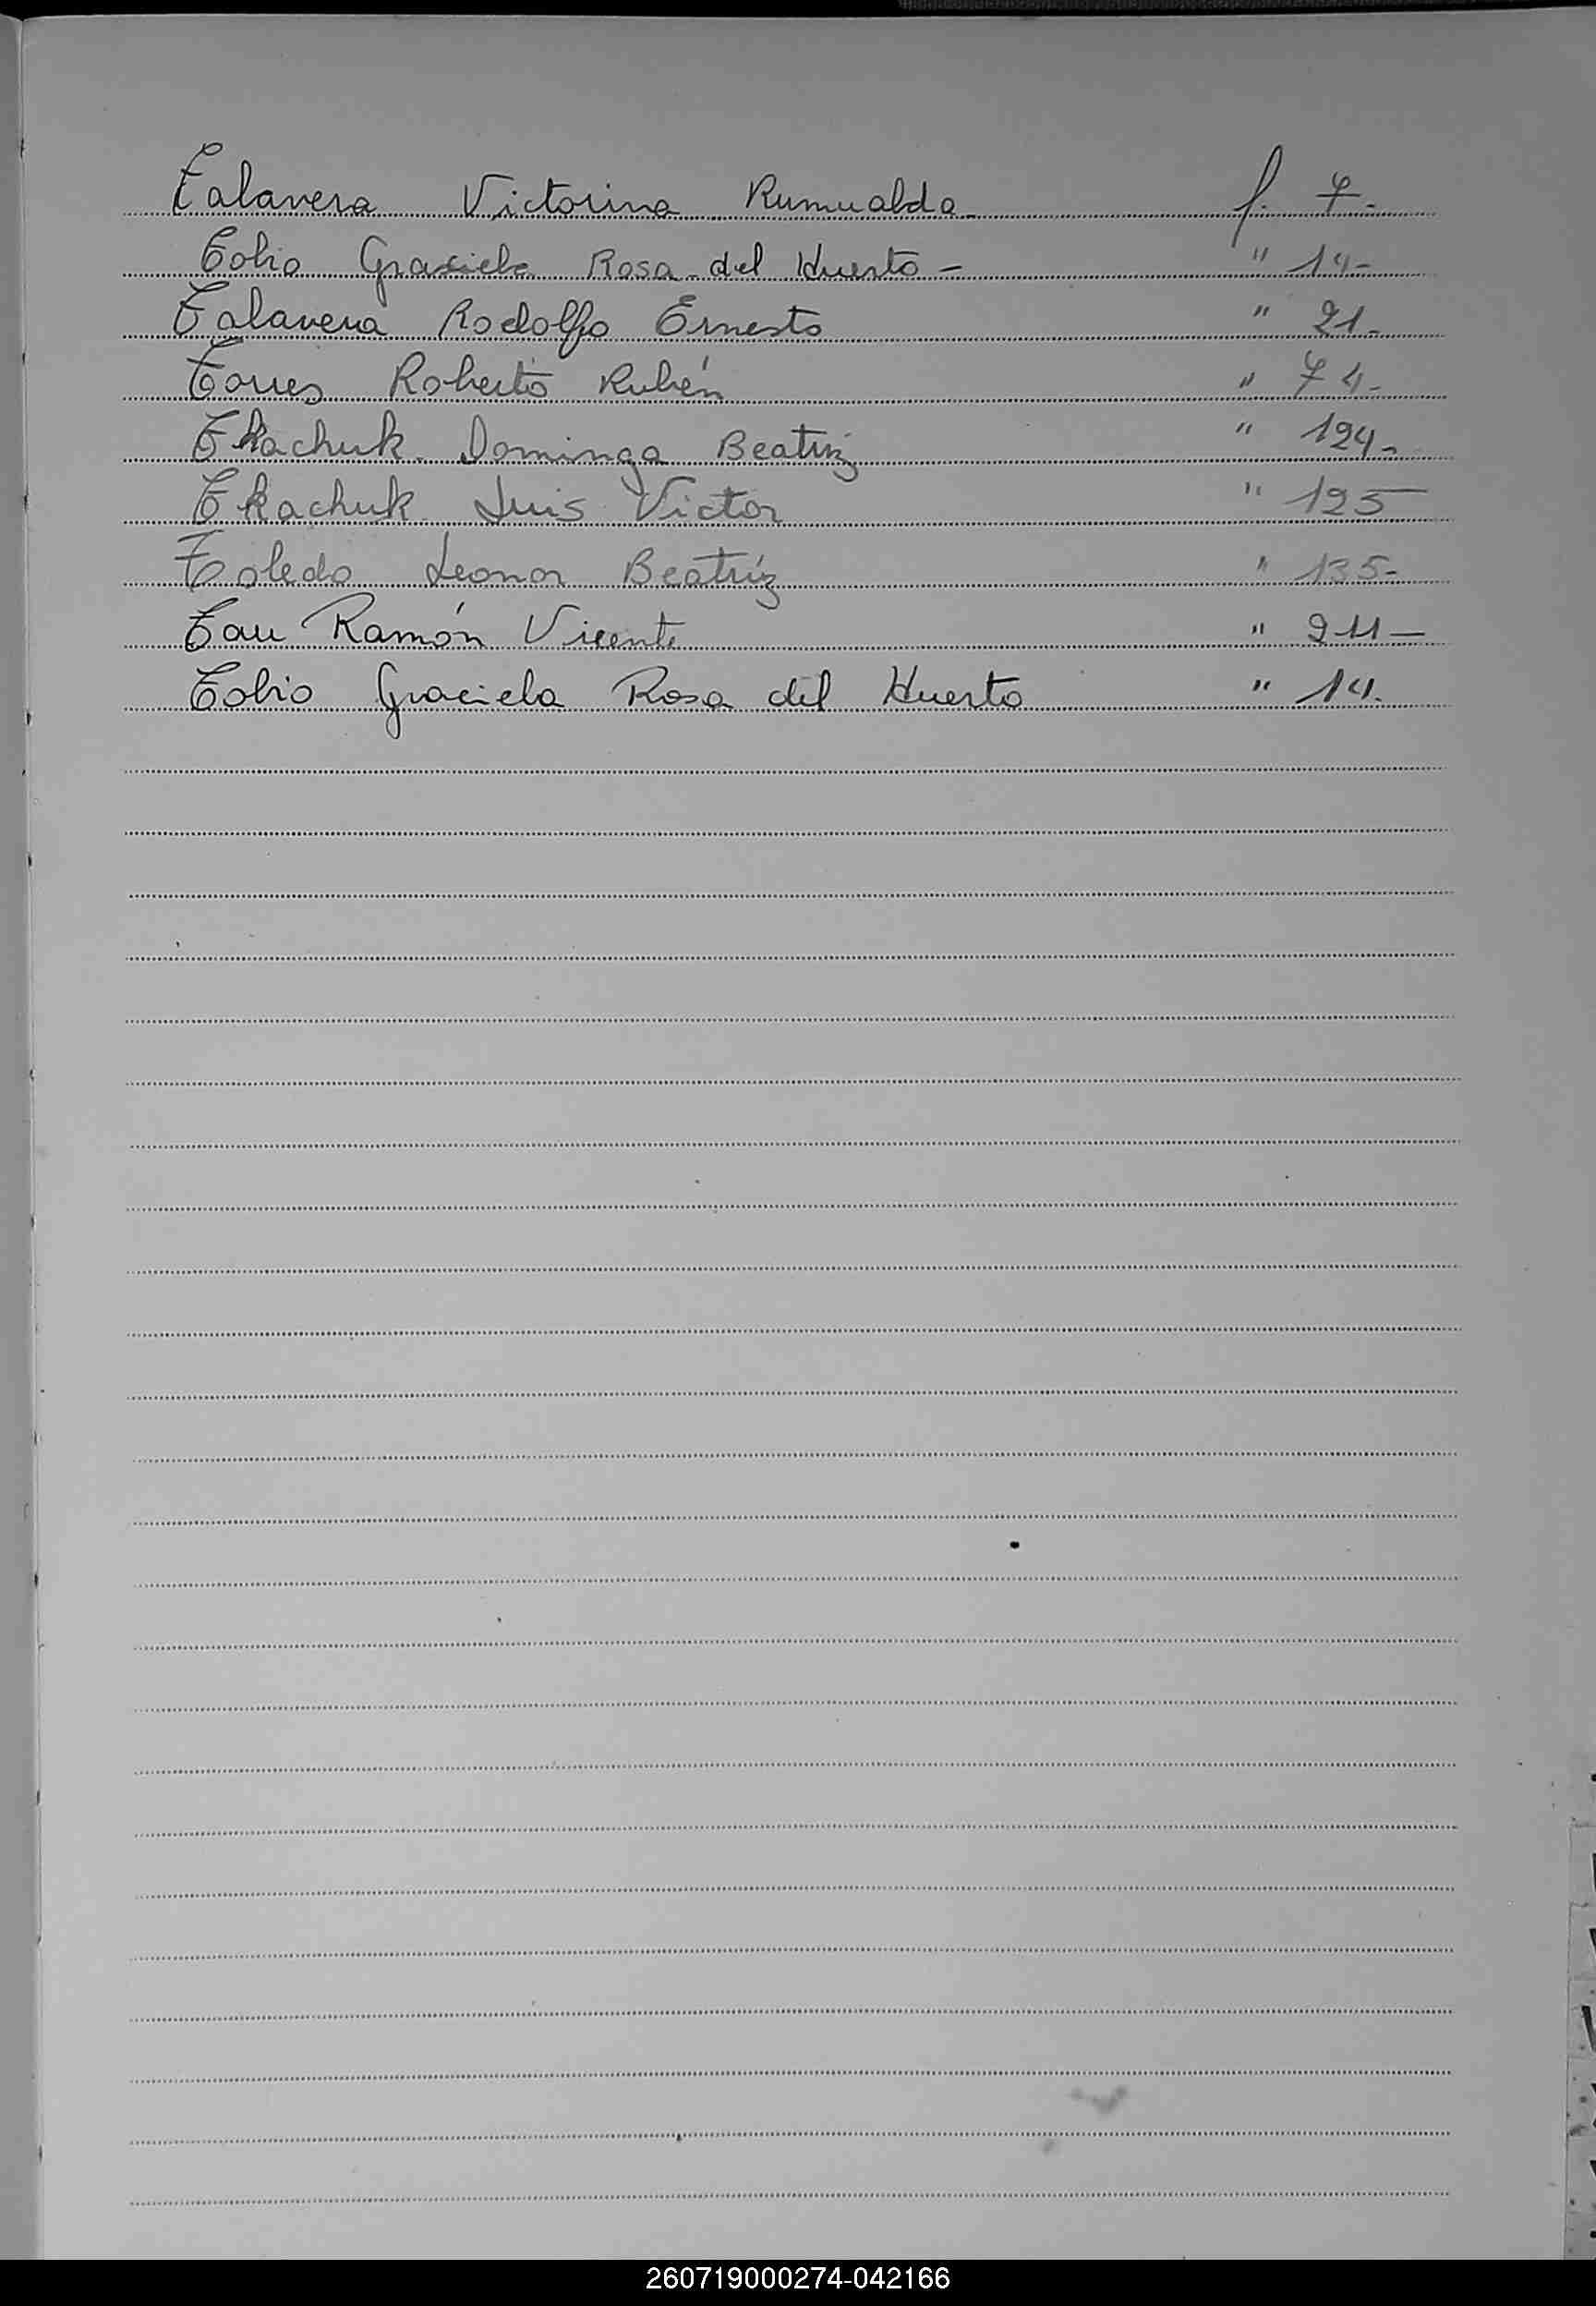 Talavera Victorina Rumualda f. 7.
Tobio Graciela Rosa del Huerto - " 14-
Talavera Rodolfo Ernesto " 21-
Torres Roberto Rubén " 74-
Tkachuk Dominga Beatriz " 124-
Tkachuk Luis Victor " 125-
Toledo Leonor Beatríz " 135-
Tau Ramón Vicente " 211-
Tobio Graciela Rosa del Huerto " 14.
260719000274-042166